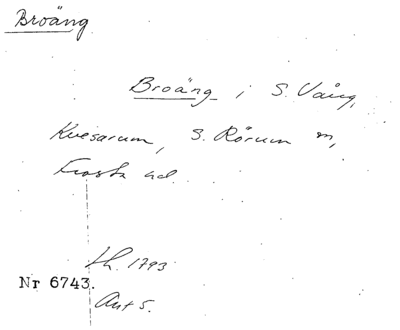 Broäng
Broäng i S. Vång,
Kvesarum, S. Rörum m,
Frosta hd.
th. 1793
Nr 6743.
Ant 5.